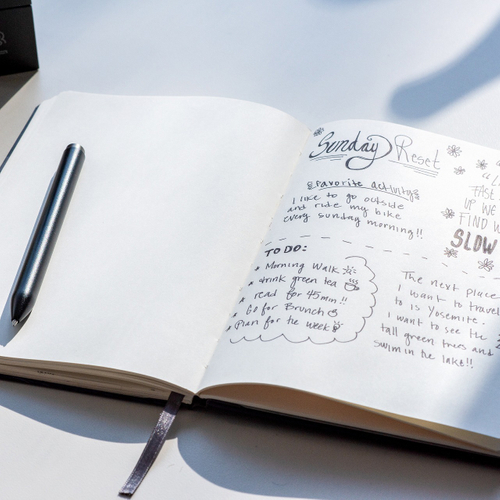 Sunday Reset
Favorite activity
I like to go outside
and ride my bike
every sunday morning!!
TO DO:
Morning Walk
drink green tea
read for 45min!!
Go for Brunch
Plan for the week
FAST
UP WE
FIND
SLOW
The next place
I want to travel
to is Yosemite.
I want to see the
tall green trees and
swim in the lake!!